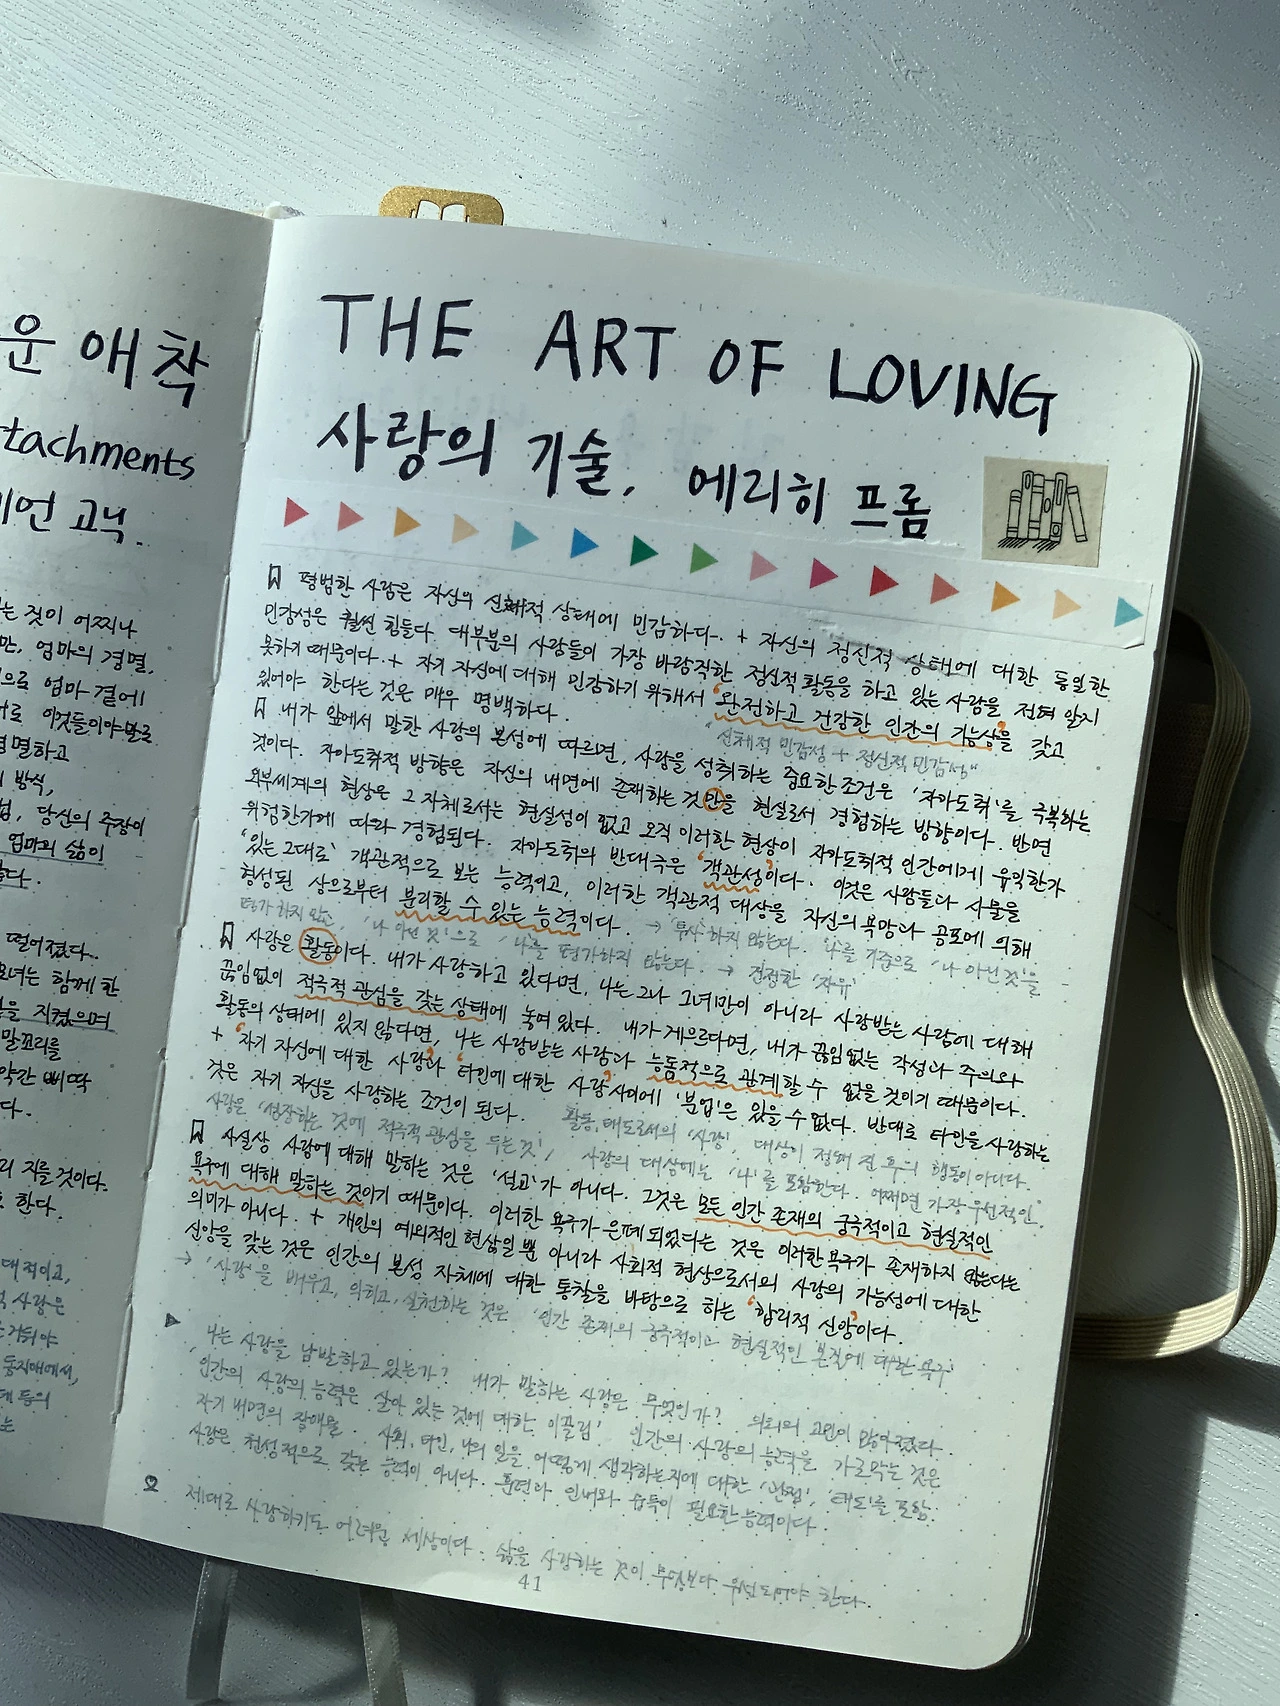 운 애착
tachments
비언 고닉.
는 것이 어찌나
만, 엄마의 경멸,
으로 엄마 곁에
로 이것들이야말로
경멸하고
방식,
당신의 주장이
엄마의 삶이
떨어졌다.
모녀는 함께 한
을 지켰으며
말꼬리를
약간 삐딱
다.
리 지를것이다.
한다.
대적이고,
사랑은
동지애에서,
THE ART OF LOVING
사랑의 기술, 에리히 프롬
평범한 사람은 자신의 신체적 상태에 민감하다. + 자신의 정신적 상태에 대한 동일한
민감성은 훨씬 힘들다. 대부분의 사람들이 가장 바람직한 정신적 활동을 하고 있는 사람을 전혀 알지
못하기 때문이다. + 자기 자신에 대해 민감하기 위해서 '완전하고 건강한 인간의 기능상'을 갖고
있어야 한다는 것은 매우 명백하다.
"신체적 민감성 + 정신적 민감성"
내가 앞에서 말한 사랑의 본성에 따르면, 사랑을 성취하는 중요한 조건은 '자아도취'를 극복하는
것이다. 자아도취적 방향은 자신의 내면에 존재하는 것만을 현실로서 경험하는 방향이다. 반면
외부세계의 현상은 그 자체로서는 현실성이 없고 오직 이러한 현상이 자아도취적 인간에게 유익한가
위험한가에 따라 경험된다. 자아도취의 반대극은 '객관성'이다. 이것은 사람들과 사물을
'있는 그대로' 객관적으로 보는 능력이고, 이러한 객관적 대상을 자신의 욕망과 공포에 의해
형성된 상으로부터 분리할 수 있는 능력이다. → '투사'하지 않는다. '나'를 기준으로 '나 아닌 것'을
평가하지 않고, '나 아닌 것'으로 '나'를 평가하지 않는다 → 진정한 '자유'
사랑은 활동이다. 내가 사랑하고 있다면, 나는 그나 그녀만이 아니라 사랑받는 사람에 대해
끊임없이 적극적 관심을 갖는 상태에 놓여 있다. 내가 게으르다면, 내가 끊임없는 각성과 주의와
활동의 상태에 있지 않다면, 나는 사랑받는 사람과 능동적으로 관계할 수 없을 것이기 때문이다.
+ '자기 자신에 대한 사랑'과 '타인에 대한 사랑' 사이에 '분업'은 있을 수 없다. 반대로 타인을 사랑하는
것은 자기 자신을 사랑하는 조건이 된다. 활동, 태도로서의 '사랑', 대상이 정해 진 후의 행동이 아니다.
사랑은 '성장하는 것에 적극적 관심을 두는 것', 사랑의 대상에는 '나'를 포함한다. 어쩌면 가장 우선적인
사실상 사랑에 대해 말하는 것은 '설교'가 아니다. 그것은 모든 인간 존재의 궁극적이고 현실적인
욕구에 대해 말하는 것이기 때문이다. 이러한 욕구가 은폐되었다는 것은 이러한 욕구가 존재하지 않는다는
의미가 아니다. + 개인의 예외적인 현상일 뿐 아니라 사회적 현상으로서의 사랑의 가능성에 대한
신앙을 갖는 것은 인간의 본성 자체에 대한 통찰을 바탕으로 하는 '합리적 신앙'이다.
→ '사랑'을 배우고, 익히고, 실천하는 것은 '인간 존재의 궁극적이고 현실적인 본질에 대한 욕구'
나는 사랑을 남발하고 있는가? 내가 말하는 사랑은 무엇인가? 의 고민이 많아졌다.
'인간의 사랑의 능력은 살아 있는 것에 대한 이끌림' 인간의 사랑의 능력을 가로막는 것은
자기 내면의 장애물. 사회, 타인, 나의 일을 어떻게 생각하는지에 대한 '관점', '태도'를 포함.
사랑은 천성적으로 갖는 능력이 아니다. 훈련과 인내와 습득이 필요한 능력이다.
제대로 사랑하기도 어려운 세상이다. 삶을 사랑하는 것이 무엇보다 우선되어야 한다.
41